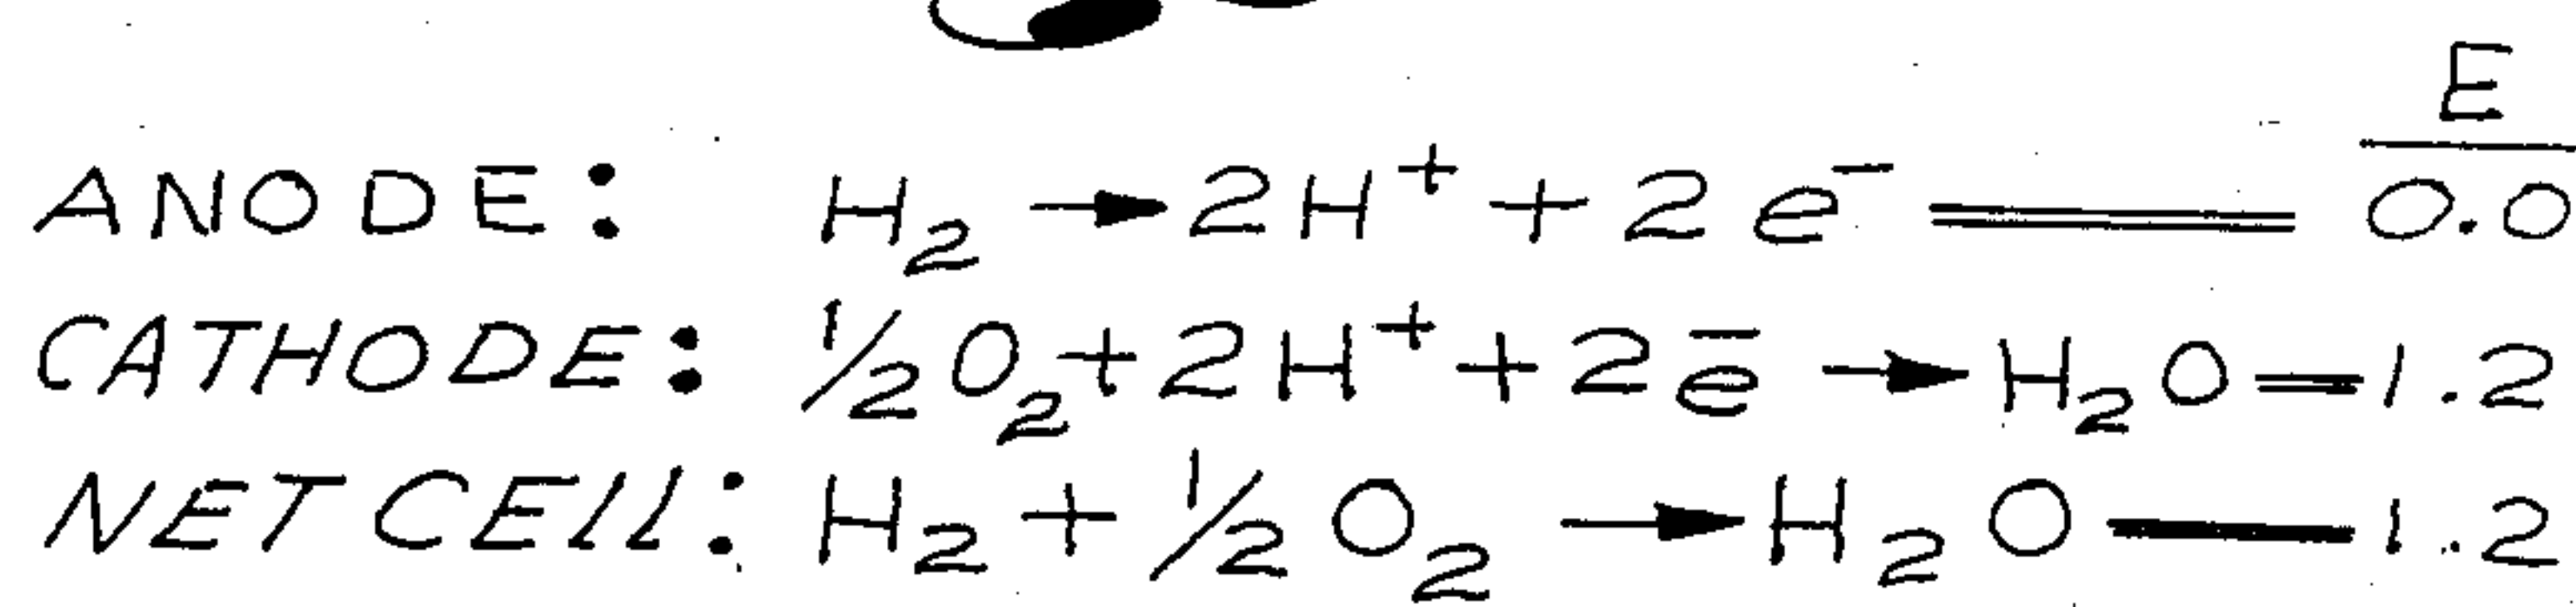 E
ANODE: H₂ → 2H⁺ + 2e⁻ 0.0
CATHODE: ½O₂ + 2H⁺ + 2e̅ → H₂O 1.2
NET CELL: H₂ + ½O₂ → H₂O 1.2